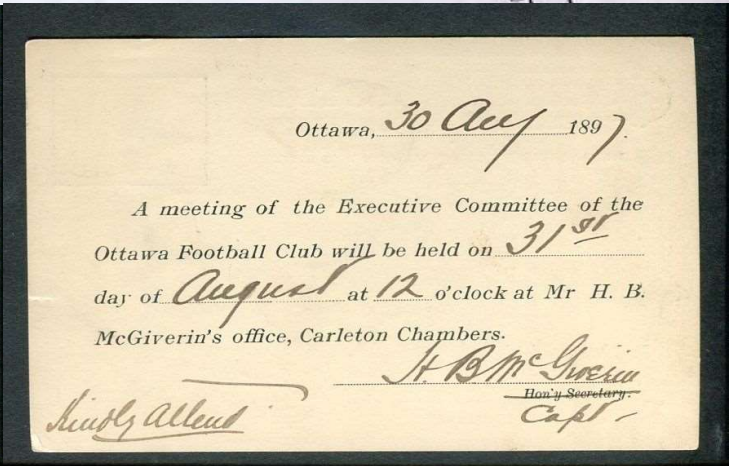 Ottawa, 30 Aug 1897.
A meeting of the Executive Committee of the
Ottawa Football Club will be held on 31st
day of August at 12 o'clock at Mr H. B.
McGiverin's office, Carleton Chambers.
H. B. McGiverin
Hon'y Secretary.
Capt
Kindly Attend